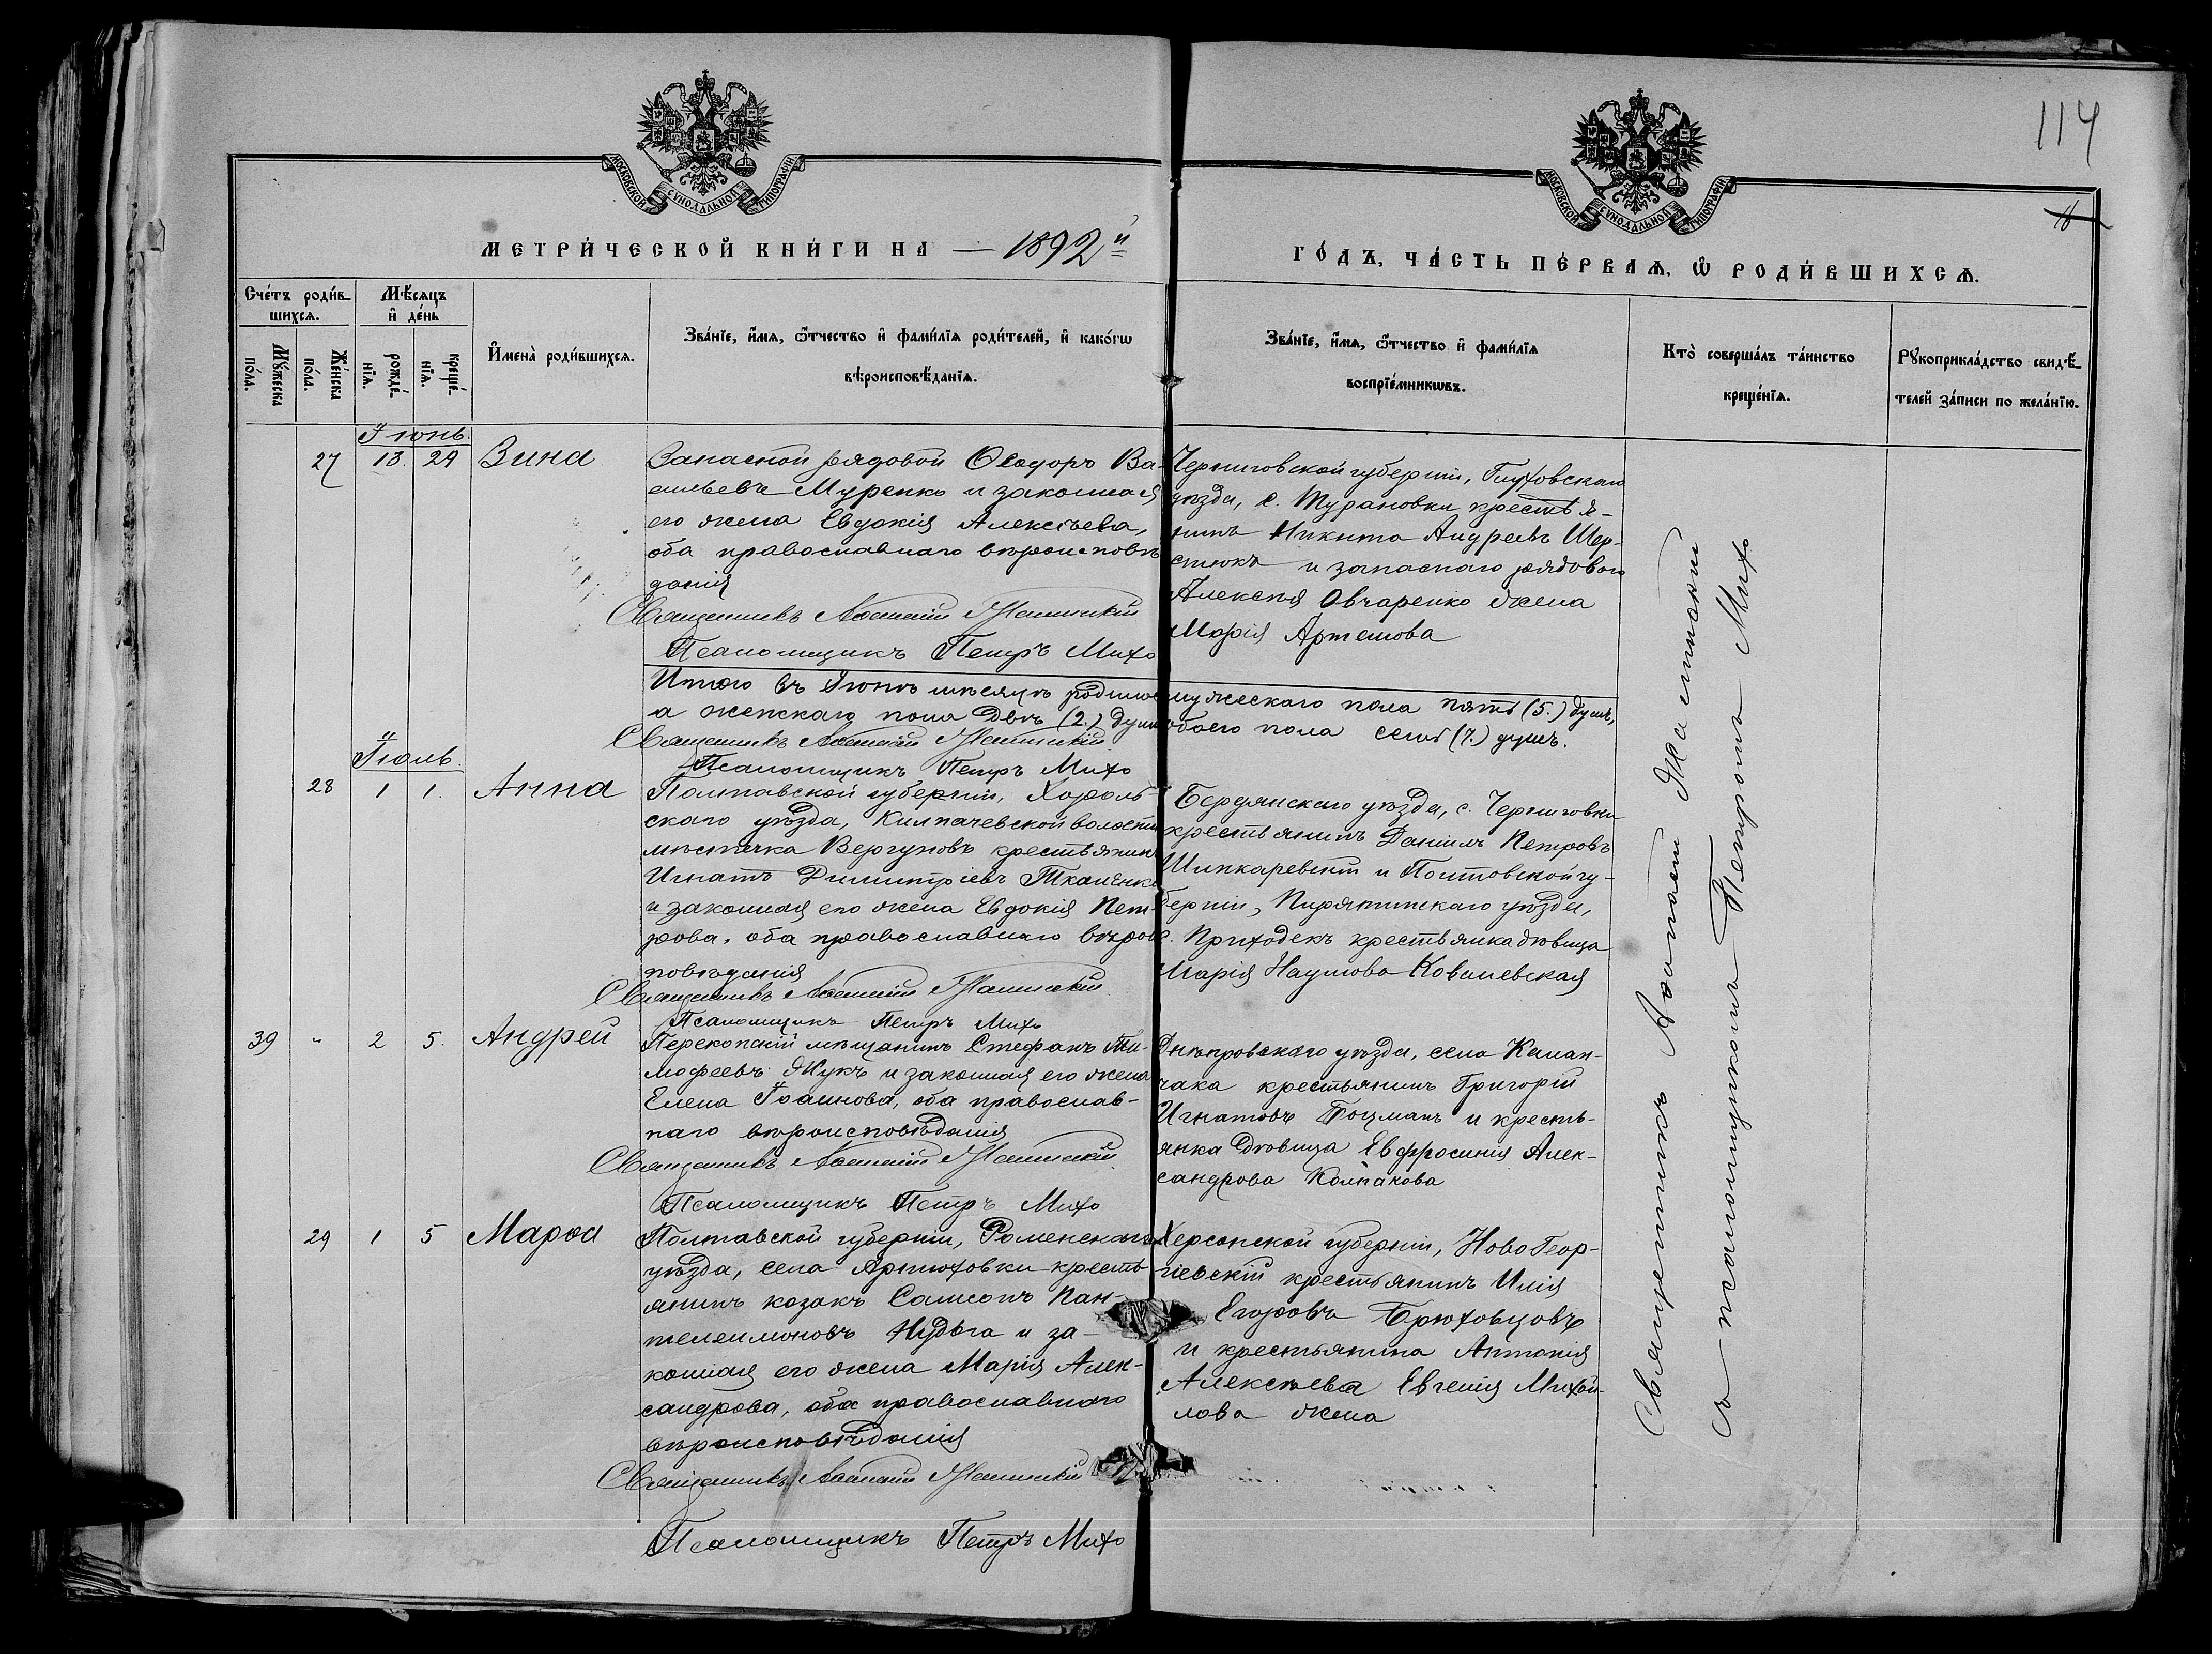 114
16
МОСКОВСКОЙ СѴНОДАЛЬНОЙ ТИПОГРАФІИ
МОСКОВСКОЙ СѴНОДАЛЬНОЙ ТИПОГРАФІИ
МЕТРИ́ЧЕСКОЙ КНИ́ГИ НА 1892й
ГО́ДЪ, ЧА́СТЬ ПЕ́РВАѦ, Ѽ РОДИ́ВШИХСѦ.
Сче́тъ роди́вшихсѧ.
Мꙋ́жеска по́ла.
Же́нска по́ла.
Мѣ́сѧцъ и҆ де́нь
рожде́нїѧ.
креще́нїѧ.
И҆мена̀ роди́вшихсѧ.
Зва́нїе, и҆́мѧ, ѻ҆́тчество и҆ фами́лїѧ роди́телей, и҆ како́гѡ
вѣроисповѣ́данїѧ.
Зва́нїе, и҆́мѧ, ѻ҆́тчество и҆ фами́лїѧ
воспрїе́мникѡвъ.
Кто̀ соверша́лъ та́инство
креще́нїѧ.
Рꙋкоприкла́дство свидѣ́-
телей за́писи по жела́нїю.
Іюнь.
27 13. 29 Зина
Запасной рядовой Ѳеодоръ Ва-
сильевъ Муренко и законная
его жена Евдокія Алексѣева,
оба православнаго вѣроисповѣ
данія
Священникъ
Псаломщикъ Петръ Михо
Черниговской губерніи, Глуховскаго
уѣзда, с. Турановки крестья-
нинъ Никита Андреевъ Шер-
стюкъ и запаснаго рядового
Алексѣя Овчаренко жена
Марія Артемова
Итого въ Іюнѣ мѣсяцѣ родилось мужескаго пола пять (5.) душъ,
а женскаго пола двѣ (2.) души обоего пола семь (7.) душъ.
Священникъ
Псаломщикъ Петръ Михо
Іюль.
28 1 1. Анна
Полтавской губерніи, Хороль-
скаго уѣзда, Килпачевской волости
мѣстечка Вергуновъ крестьянинъ
Игнатъ Димитріевъ Ткаченко
и законная его жена Евдокія Пет-
рова, оба православнаго вѣроис
повѣданія
Священникъ
Псаломщикъ Петръ Михо
Бердянскаго уѣзда, с. Черниговки
крестьянинъ Даніилъ Петровъ
Шинкаревскій и Полтовской гу-
берніи, Пирятинскаго уѣзда,
с. Приходекъ крестьянка дѣвица
Марія Наумова Ковалевская
39 " 2 5. Андрей
Перекопскій мѣщанинъ Стефанъ Ти-
мофеевъ Жукъ и законная его жена
Елена Іоаннова, оба православ-
наго вѣроисповѣданія
Священникъ
Псаломщикъ Петръ Михо
Днѣпровскаго уѣзда, села Калан-
чака крестьянинъ Григорій
Игнатовъ Тоцманъ и кресть-
янка дѣвица Евфросинія Алек-
сандрова Колпакова
29 1 5 Марѳа
Полтавской губерніи, Роменскаго
уѣзда, села Артюховки кресть-
янинъ козакъ Самсонъ Пан-
телеимоновъ Нудьга и за-
конная его жена Марія Алек-
сандрова, оба православнаго
вѣроисповѣданія
Священникъ
Псаломщикъ Петръ Михо
Херсонской губерніи, НовоГеор-
гіевскій крестьянинъ Илія
Егоровъ Брюховцовъ
и крестьянина Антонія
Алексѣева Евгенія Михай-
лова жена
Священникъ
съ псаломщикомъ Петромъ Михо